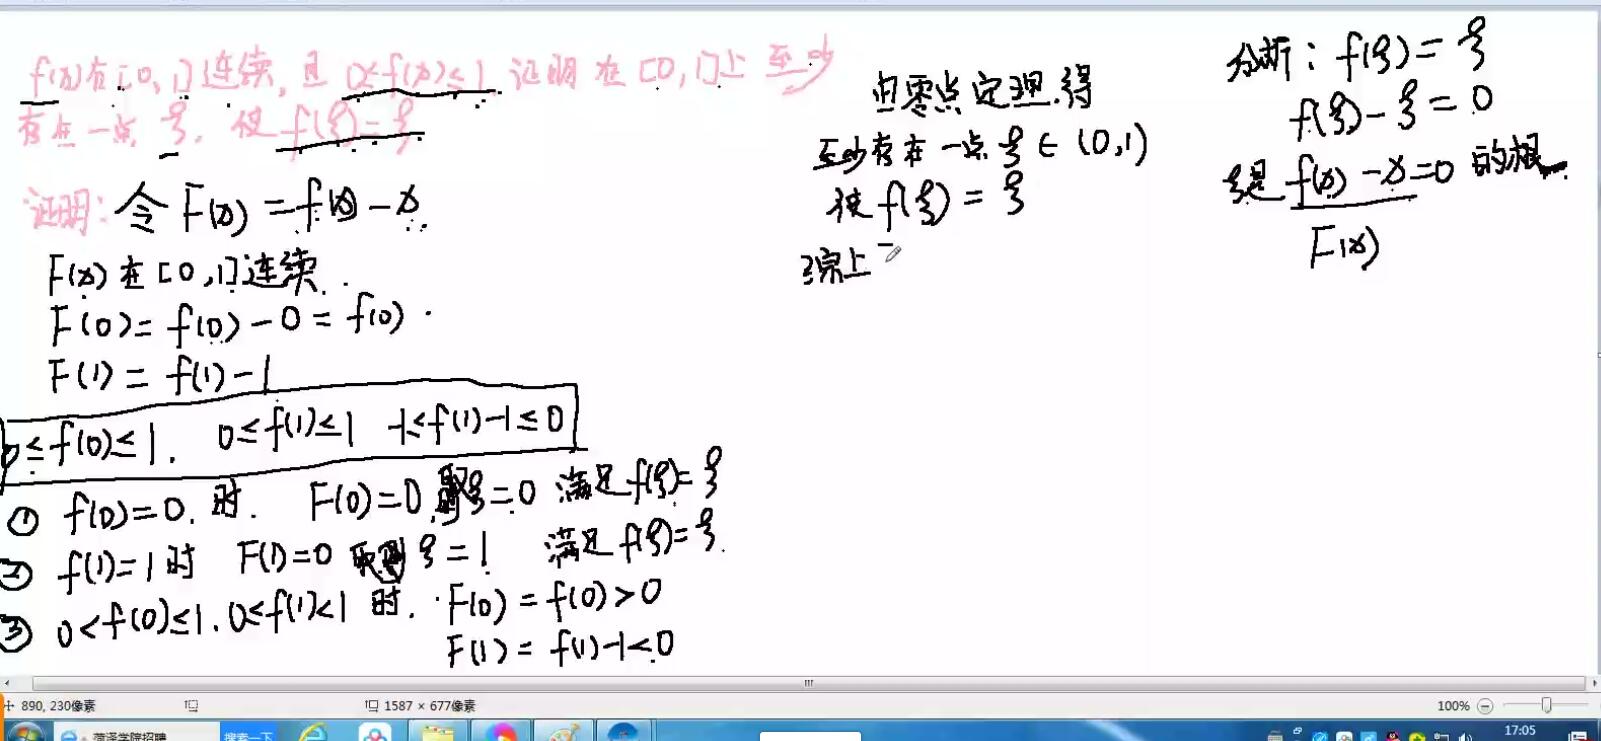 f(x)在[0,1]连续,且0≤f(x)≤1.证明在[0,1]上至少
存在一点ξ.使f(ξ)=ξ
证明:令F(x)=f(x)-x.
F(x)在[0,1]连续.
F(0)=f(0)-0=f(0).
F(1)=f(1)-1
0≤f(0)≤1. 0≤f(1)≤1 -1≤f(1)-1≤0
① f(0)=0.时. F(0)=0,取ξ=0 满足f(ξ)=ξ
② f(1)=1时 F(1)=0 取ξ=1 满足f(ξ)=ξ.
③ 0<f(0)≤1.0≤f(1)<1时. F(0)=f(0)>0
F(1)=f(1)-1<0
由零点定理.得
至少存在一点ξ∈(0,1)
使f(ξ)=ξ
综上
分析:f(ξ)=ξ
f(ξ)-ξ=0
ξ是f(x)-x=0的根.
F(x)
890, 230像素
1587 × 677像素
100%
菏泽学院招聘
搜索一下
17:05